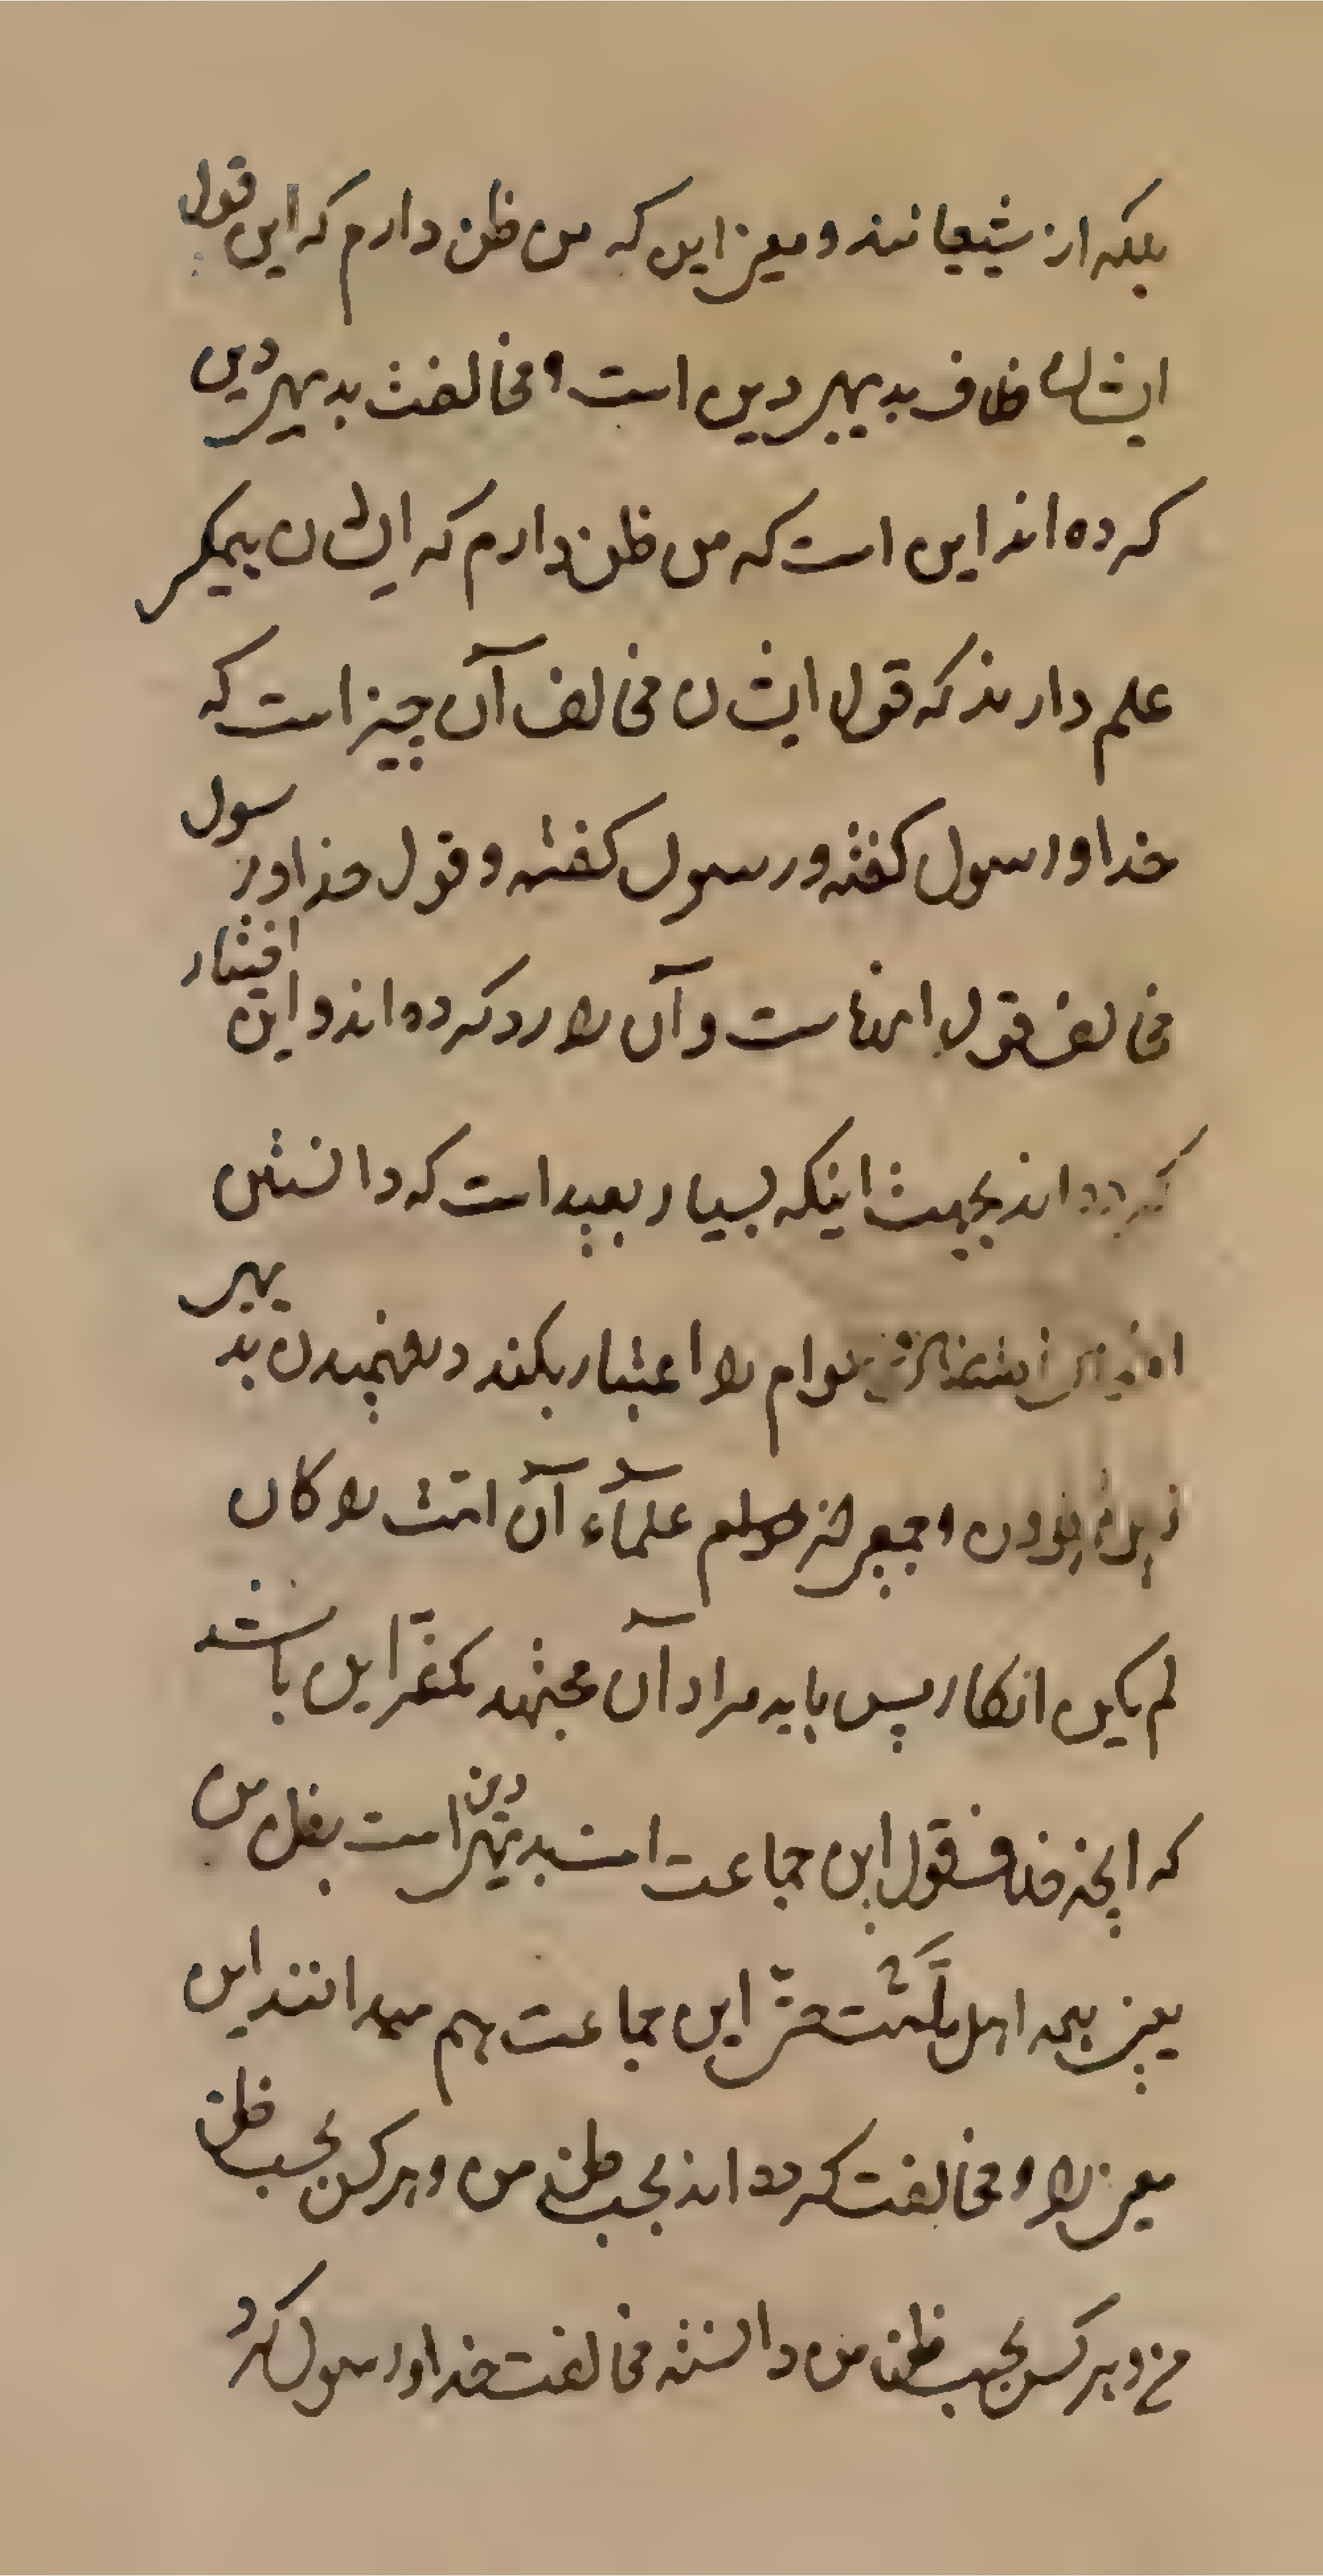 بلکه از شیعیانند و معنی این که من ظن دارم که این قول
ایشان خلاف بدیهی دین است و مخالفت بدیهی دین
کرده اند این است که من ظن دارم که ایشان بیکی
علم دارند که قول ایشان مخالف آن چیز است که
خدا و رسول گفته و رسول گفته و قول خدا و رسول
مخالف قول اینهاست و آن را رد کرده اند و این اختیار
کرده اند بجهت اینکه بسیار بعید است که دانستن
عوام را اعتبار بکند در فهمیدن بدیهی
بودن و جمعی علماء آن امت را کان
لم یکن انکار پس باید مراد آن مجتهد این باشد
که خلاف قول این جماعت است بدیهی دین است بظن من
یعنی همه اهل ملت حتی این جماعت هم میدانند این
معنی را و مخالفت کرده اند بحسب ظن من و هر کس بحسب ظن
من و هر کس بحسب ظن من دانسته مخالفت خدا و رسول کرد